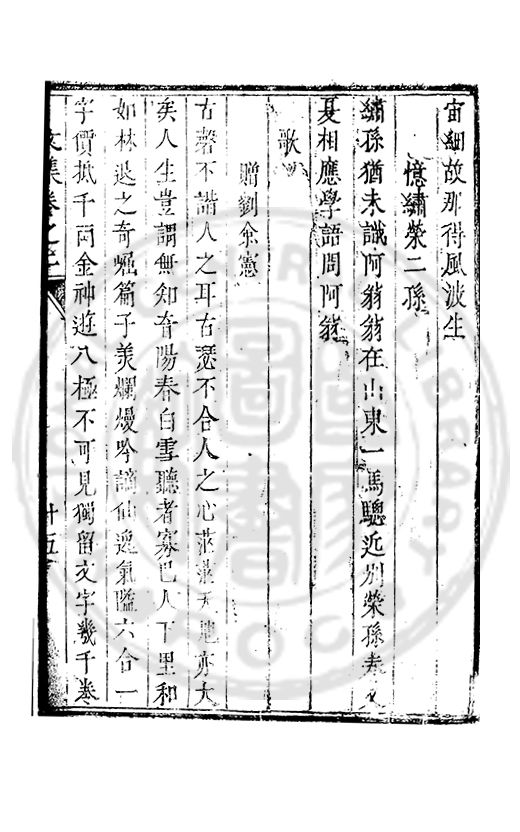 宙細故那得風波生
憶繡榮二孫
繡孫猶未識阿翁翁在山東一馬驄近別榮孫春又
夏相應學語問阿翁
歌
贈劉僉憲
古磬不諧人之耳古瑟不合人之心茫茫天地亦大
矣人生豈謂無知音陽春白雪聽者寡巴人下里和
如林退之奇崛篇子美爛熳吟謫仙逸氣隘六合一
字價抵千兩金神遊八極不可見獨留文字幾千卷
文集卷之
廿五